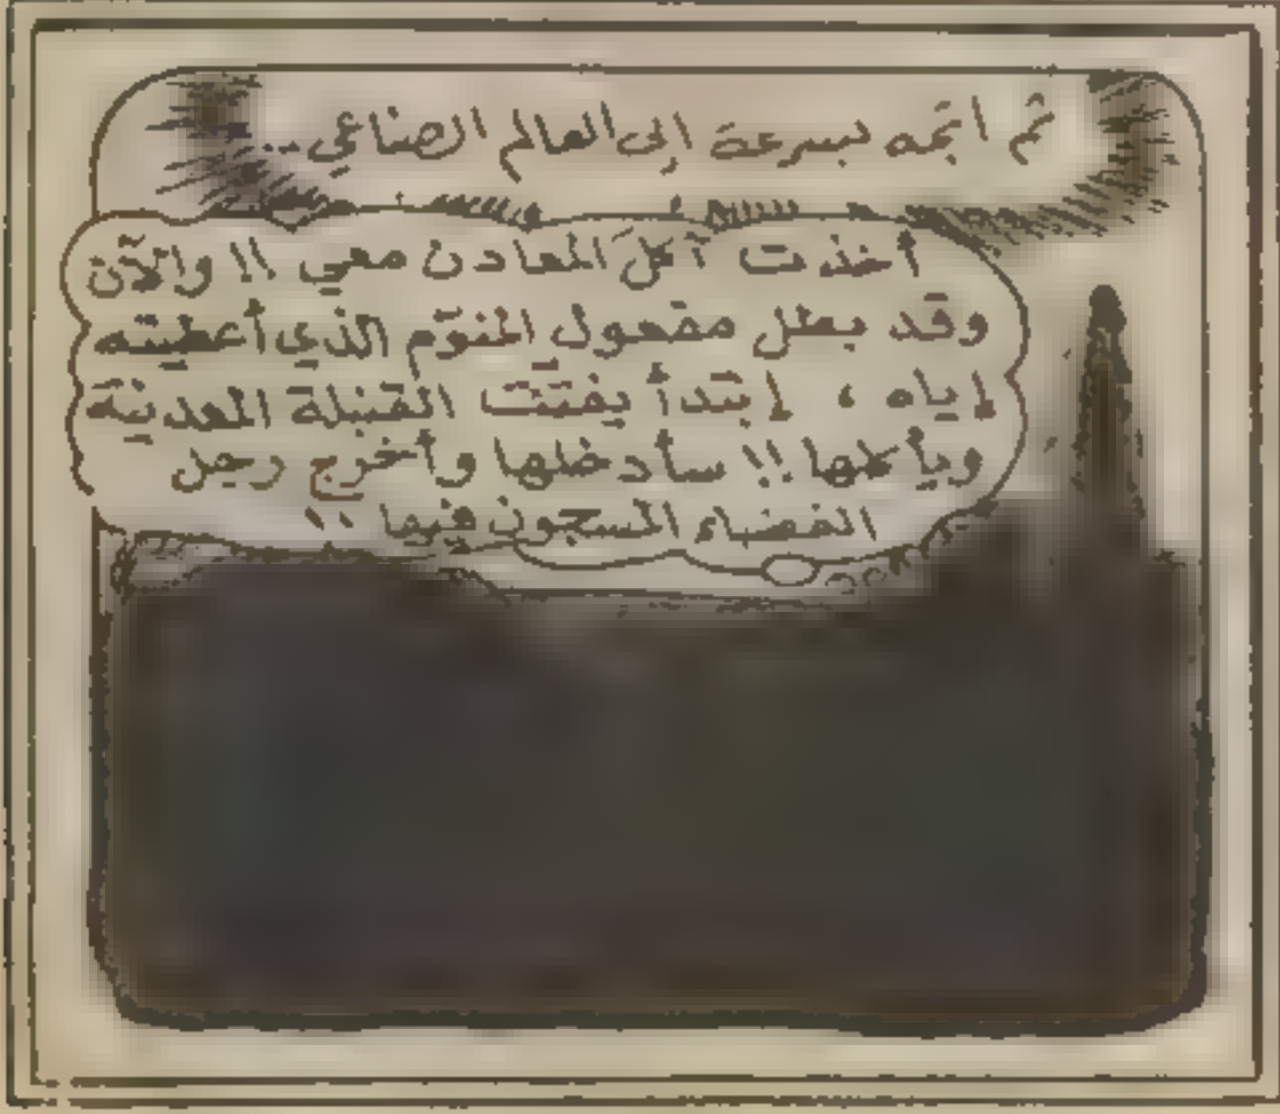 ثم اتجه بسرعة إلى العالم الصناعي..
أخذت آكلَ المعادن معي !! والآن
وقد بطل مفعول المنوّم الذي أعطيته
إياه ، إبتدأ يفتت القنبلة المعدنية
ويأكلها !! سأدخلها وأخرج رجل
الفضاء المسجون فيها !!